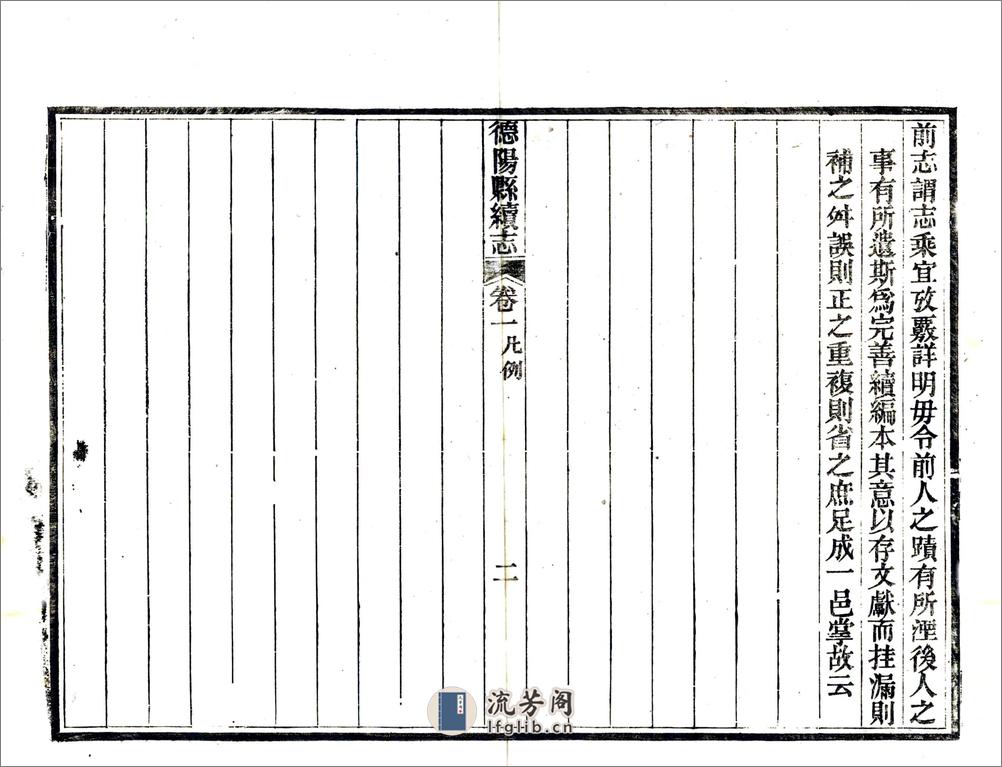 前志謂志乘宜攷覈詳明毋令前人之蹟有所湮後人之
事有所遺斯爲完善續編本其意以存文獻而挂漏則
補之舛誤則正之重複則省之庶足成一邑掌故云
德陽縣續志 卷一 凡例 二
流芳阁
lfglib.cn